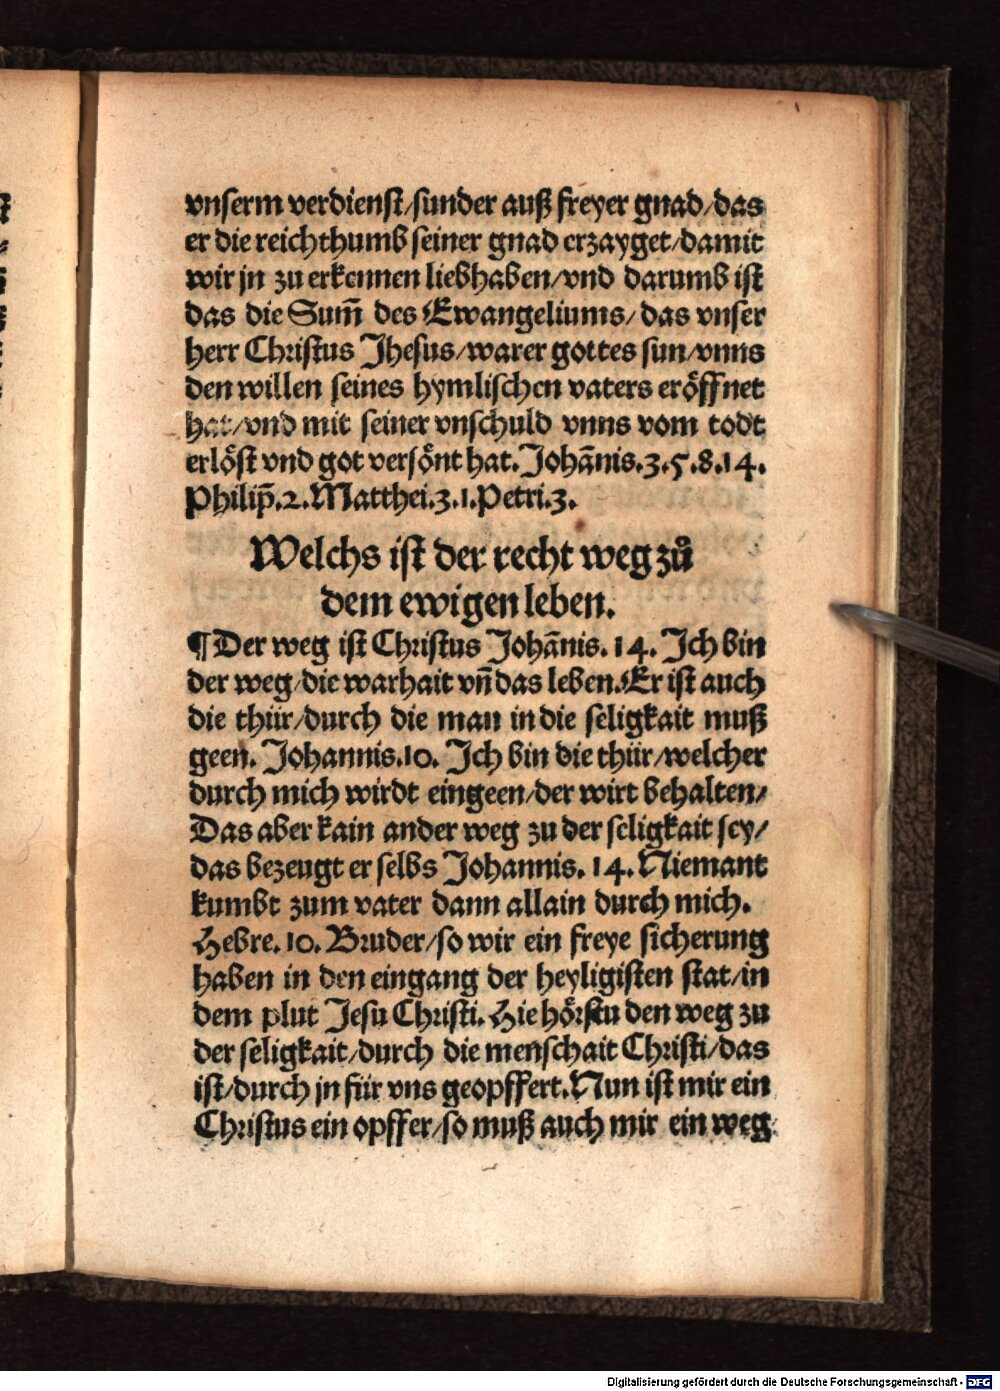 vnserm verdienst/sunder auß freyer gnad/das
er die reichthumb seiner gnad erzayget/damit
wir jn zu erkennen liebhaben/vnd darumb ist
das die Sum̄ des Ewangeliums/das vnser
herr Christus Jhesus/warer gottes sun/vnns
den willen seines hymlischen vaters eröffnet
hat/vnd mit seiner vnschuld vnns vom todt
erlöst vnd got versönt hat. Johānis.3.5.8.14.
Philip̄.2.Matthei.3.1.Petri.3.
Welchs ist der recht weg zů
dem ewigen leben.
¶Der weg ist Christus Johānis. 14. Jch bin
der weg/die warhait vn̄ das leben.Er ist auch
die thür/durch die man in die seligkait muß
geen. Johannis.10. Jch bin die thür/welcher
durch mich wirdt eingeen/der wirt behalten/
Das aber kain ander weg zu der seligkait sey/
das bezeugt er selbs Johannis. 14. Niemant
kumbt zum vater dann allain durch mich.
Hebre. 10. Bruder/so wir ein freye sicherung
haben in den eingang der heyligisten stat/in
dem plut Jesu Christi. Hie hörstu den weg zu
der seligkait/durch die menschait Christi/das
ist/durch jn für vns geopffert. Nun ist mir ein
Christus ein opffer/so muß auch mir ein weg
Digitalisierung gefördert durch die Deutsche Forschungsgemeinschaft - DFG